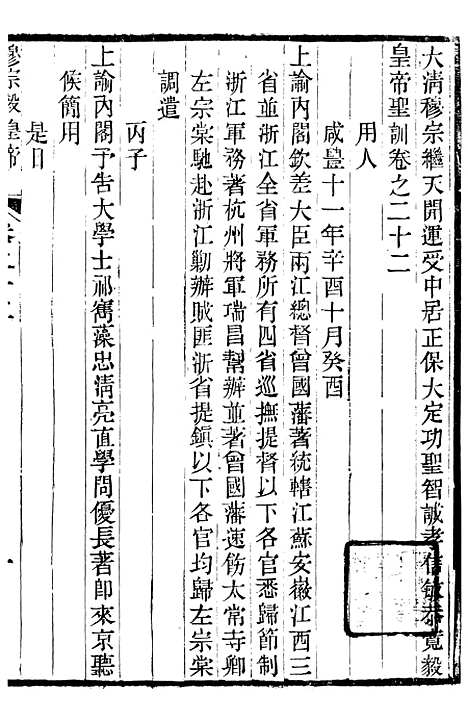 大清穆宗繼天開運受中居正保大定功聖智誠孝信敏恭寬毅
皇帝聖訓卷之二十二
用人
咸豐十一年辛酉十月癸酉
上諭內閣欽差大臣兩江總督曾國藩著統轄江蘇安徽江西三
省並浙江全省軍務所有四省巡撫提督以下各官悉歸節制
浙江軍務著杭州將軍瑞昌幫辦並著曾國藩速飭太常寺卿
左宗棠馳赴浙江勦辦賊匪浙省提鎮以下各官均歸左宗棠
調遣
丙子
上諭內閣予告大學士祁寯藻忠清亮直學問優長著即來京聽
候簡用
是日
穆宗毅皇帝
卷二十二
一